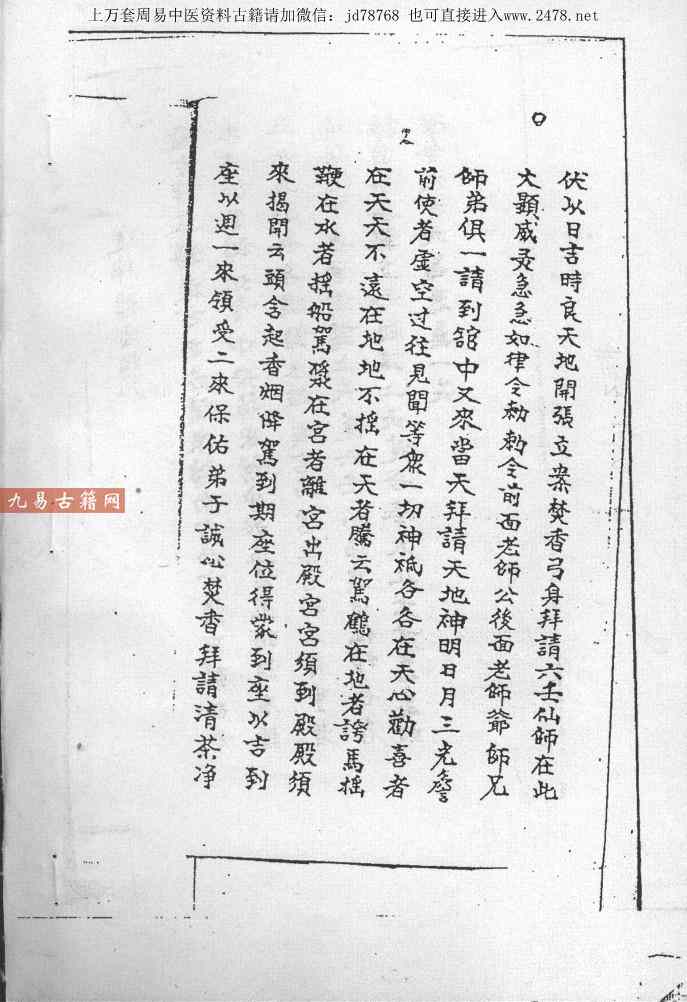 上万套周易中医资料古籍请加微信：jd78768 也可直接进入www.2478.net
伏以日吉時良天地開張立案焚香弓身拜請六壬仙師在此
大顯威灵急急如律令勅勅令前面老師公後面老師爺師兄
師弟俱一請到舘中又來當天拜請天地神明日月三光簷
前使者虛空过往見聞等衆一切神祇各各在天心勸喜者
在天天不遠在地地不摇在天者騰云駕鶴在地者誇馬摇
鞭在水者摇船駕漿在宮者離宮出殿宮宮須到殿殿須
來揭開云頭含起香烟降駕到期座位得蒙到座以吉到
座以週一來領受二來保佑弟子誠心焚香拜請清茶净
九易古籍网